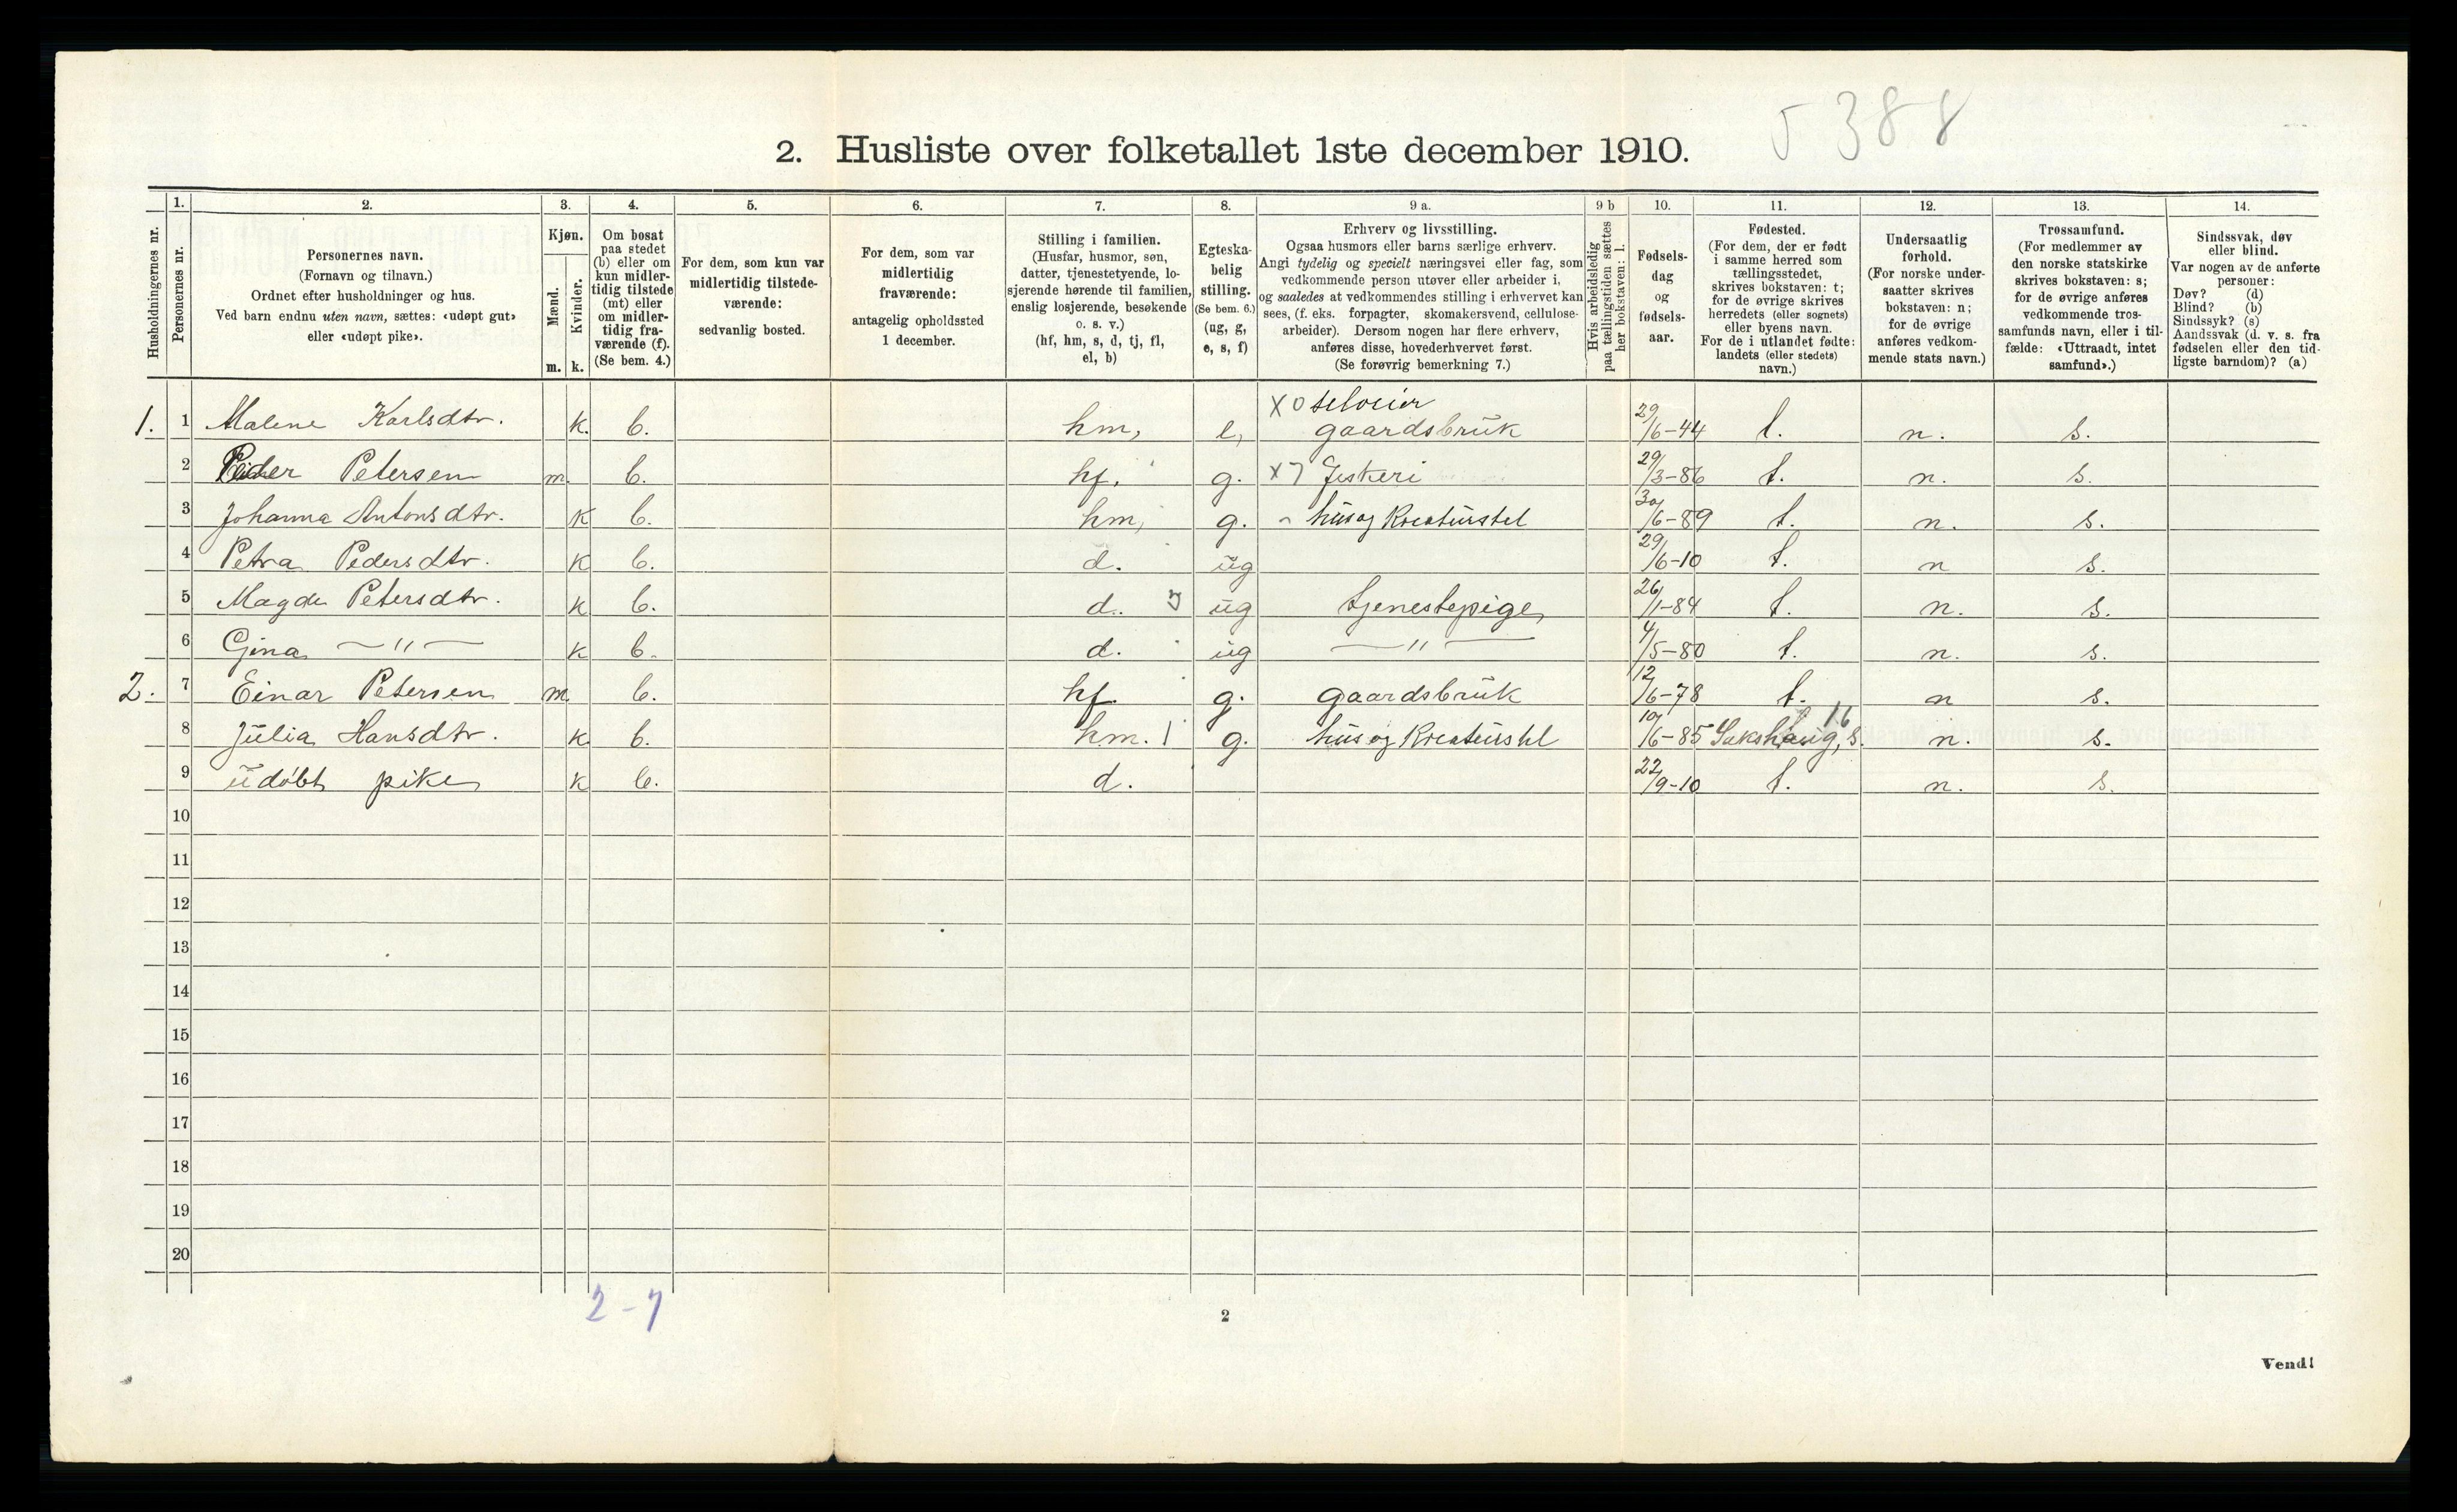 5388
2. Husliste over folketallet 1ste december 1910.
Husholdningernes nr.
1. Personernes nr.
2. Personernes navn. (Fornavn og tilnavn.) Ordnet efter husholdninger og hus. Ved barn endnu uten navn, sættes: «udøpt gut» eller «udøpt pike».
3. Kjøn. Mænd. m. Kvinder. k.
4. Om bosat paa stedet (b) eller om kun midlertidig tilstede (mt) eller om midlertidig fraværende (f). (Se bem. 4.)
5. For dem, som kun var midlertidig tilstedeværende: sedvanlig bosted.
6. For dem, som var midlertidig fraværende: antagelig opholdssted 1 december.
7. Stilling i familien. (Husfar, husmor, søn, datter, tjenestetyende, losjerende hørende til familien, enslig losjerende, besøkende o. s. v.) (hf, hm, s, d, tj, fl, el, b)
8. Egteskabelig stilling. (Se bem. 6.) (ug, g, e, s, f)
9 a. Erhverv og livsstilling. Ogsaa husmors eller barns særlige erhverv. Angi tydelig og specielt næringsvei eller fag, som vedkommende person utøver eller arbeider i, og saaledes at vedkommendes stilling i erhvervet kan sees, (f. eks. forpagter, skomakersvend, cellulosearbeider). Dersom nogen har flere erhverv, anføres disse, hovederhvervet først. (Se forøvrig bemerkning 7.)
9 b Hvis arbeidsledig paa tællingstiden sættes her bokstaven: l.
10. Fødselsdag og fødselsaar.
11. Fødested. (For dem, der er født i samme herred som tællingsstedet, skrives bokstaven: t; for de øvrige skrives herredets (eller sognets) eller byens navn. For de i utlandet fødte: landets (eller stedets) navn.)
12. Undersaatlig forhold. (For norske undersaatter skrives bokstaven: n; for de øvrige anføres vedkommende stats navn.)
13. Trossamfund. (For medlemmer av den norske statskirke skrives bokstaven: s; for de øvrige anføres vedkommende trossamfunds navn, eller i tilfælde: «Uttraadt, intet samfund».)
14. Sindssvak, døv eller blind. Var nogen av de anførte personer: Døv? (d) Blind? (b) Sindssyk? (s) Aandssvak (d. v. s. fra fødselen eller den tidligste barndom)? (a)
1. 1 Malene Karlsdtr. k. b. hm, e, X0 selveier gaardsbruk 29/6-44 t. n. s.
2 Peder Petersen m. b. hf. g. X7 Fiskeri 29/3-86 t. n. s.
3 Johanna Antonsdtr. k b. hm, g. - hus og Kreaturstel 30/6-89 t. n. s.
4 Petra Pedersdtr. k b. d. ug 29/6-10 t. n s.
5 Magda Petersdtr. k b. d. ug tjenestepige 26/1-84 t. n. s.
6 Gina —"— k b. d. ug —"— 4/5-80 t. n. s.
2. 7 Einar Petersen m. b. hf. g. gaardsbruk 12/6-78 t. n s.
8 Julia Hansdtr. k b. hm. g. hus og Kreaturstel 19/6-85 Sakshaug, s. 16 n. s.
9 udøbt pike k b. d. 22/9-10 t. n. s.
10
11
12
13
14
15
16
17
18
19
20
2-7
2
Vend!